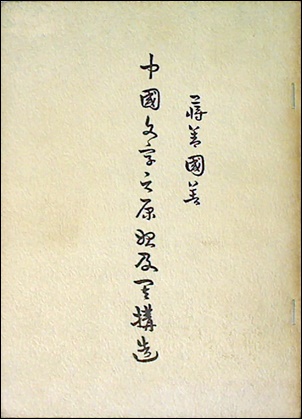 蔣善國著
中國文字之原始及其構造